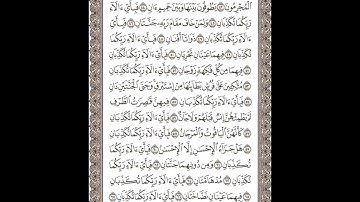 ٱلْمُجْرِمُونَ ۝٤٣ يَطُوفُونَ بَيْنَهَا وَبَيْنَ حَمِيمٍ ءَانٍ ۝٤٤ فَبِأَىِّ ءَالَآءِ
رَبِّكُمَا تُكَذِّبَانِ ۝٤٥ وَلِمَنْ خَافَ مَقَامَ رَبِّهِۦ جَنَّتَانِ ۝٤٦ فَبِأَىِّ
ءَالَآءِ رَبِّكُمَا تُكَذِّبَانِ ۝٤٧ ذَوَاتَآ أَفْنَانٍ ۝٤٨ فَبِأَىِّ ءَالَآءِ رَبِّكُمَا تُكَذِّبَانِ
۝٤٩ فِيهِمَا عَيْنَانِ تَجْرِيَانِ ۝٥٠ فَبِأَىِّ ءَالَآءِ رَبِّكُمَا تُكَذِّبَانِ
۝٥١ فِيهِمَا مِن كُلِّ فَٰكِهَةٍ زَوْجَانِ ۝٥٢ فَبِأَىِّ ءَالَآءِ رَبِّكُمَا تُكَذِّبَانِ
۝٥٣ مُتَّكِـِٔينَ عَلَىٰ فُرُشٍۭ بَطَآئِنُهَا مِنْ إِسْتَبْرَقٍ وَجَنَى ٱلْجَنَّتَيْنِ دَانٍ
۝٥٤ فَبِأَىِّ ءَالَآءِ رَبِّكُمَا تُكَذِّبَانِ ۝٥٥ فِيهِنَّ قَٰصِرَٰتُ ٱلطَّرْفِ
لَمْ يَطْمِثْهُنَّ إِنسٌ قَبْلَهُمْ وَلَا جَآنٌّ ۝٥٦ فَبِأَىِّ ءَالَآءِ رَبِّكُمَا تُكَذِّبَانِ
۝٥٧ كَأَنَّهُنَّ ٱلْيَاقُوتُ وَٱلْمَرْجَانُ ۝٥٨ فَبِأَىِّ ءَالَآءِ رَبِّكُمَا تُكَذِّبَانِ
۝٥٩ هَلْ جَزَآءُ ٱلْإِحْسَٰنِ إِلَّا ٱلْإِحْسَٰنُ ۝٦٠ فَبِأَىِّ ءَالَآءِ رَبِّكُمَا
تُكَذِّبَانِ ۝٦١ وَمِن دُونِهِمَا جَنَّتَانِ ۝٦٢ فَبِأَىِّ ءَالَآءِ رَبِّكُمَا
تُكَذِّبَانِ ۝٦٣ مُدْهَآمَّتَانِ ۝٦٤ فَبِأَىِّ ءَالَآءِ رَبِّكُمَا تُكَذِّبَانِ
۝٦٥ فِيهِمَا عَيْنَانِ نَضَّاخَتَانِ ۝٦٦ فَبِأَىِّ ءَالَآءِ رَبِّكُمَا تُكَذِّبَانِ